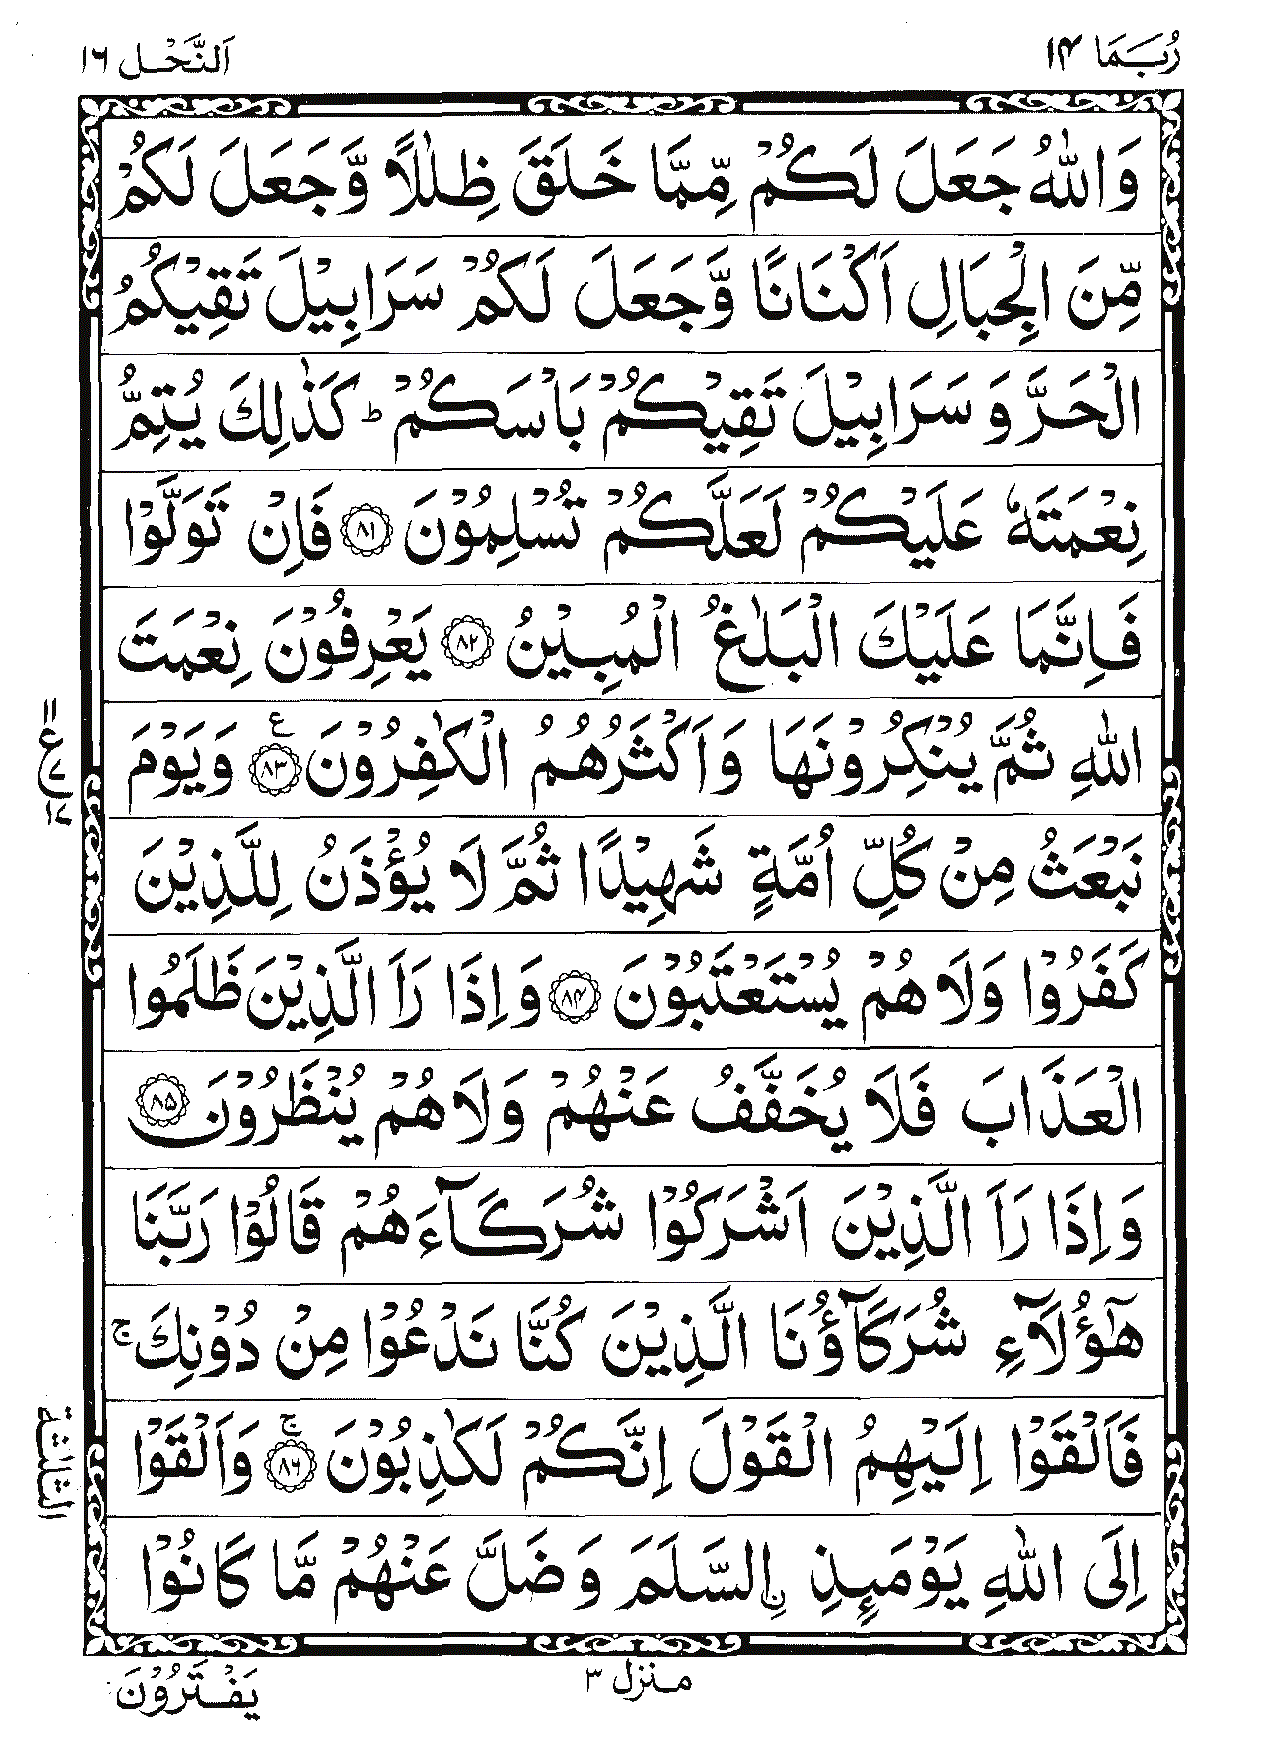 رُبَمَا ۱۴
اَلنَّحْل ۱۶
وَاللّٰهُ جَعَلَ لَكُمْ مِّمَّا خَلَقَ ظِلٰلًا وَّجَعَلَ لَكُمْ
مِّنَ الْجِبَالِ اَكْنَانًا وَّجَعَلَ لَكُمْ سَرَابِيْلَ تَقِيْكُمُ
الْحَرَّ وَ سَرَابِيْلَ تَقِيْكُمْ بَاْسَكُمْ ؕ كَذٰلِكَ يُتِمُّ
نِعْمَتَهٗ عَلَيْكُمْ لَعَلَّكُمْ تُسْلِمُوْنَ ۸۱ فَاِنْ تَوَلَّوْا
فَاِنَّمَا عَلَيْكَ الْبَلٰغُ الْمُبِيْنُ ۸۲ يَعْرِفُوْنَ نِعْمَتَ
اللّٰهِ ثُمَّ يُنْكِرُوْنَهَا وَاَكْثَرُهُمُ الْكٰفِرُوْنَ ۸۳ ع وَيَوْمَ
۱۱ ع ۷ ۱۷
نَبْعَثُ مِنْ كُلِّ اُمَّةٍ شَهِيْدًا ثُمَّ لَا يُؤْذَنُ لِلَّذِيْنَ
كَفَرُوْا وَلَا هُمْ يُسْتَعْتَبُوْنَ ۸۴ وَاِذَا رَاَ الَّذِيْنَ ظَلَمُوا
الْعَذَابَ فَلَا يُخَفَّفُ عَنْهُمْ وَلَا هُمْ يُنْظَرُوْنَ ۸۵
وَاِذَا رَاَ الَّذِيْنَ اَشْرَكُوْا شُرَكَآءَهُمْ قَالُوْا رَبَّنَا
هٰٓؤُلَآءِ شُرَكَآؤُنَا الَّذِيْنَ كُنَّا نَدْعُوْا مِنْ دُوْنِكَ ۚ
فَاَلْقَوْا اِلَيْهِمُ الْقَوْلَ اِنَّكُمْ لَكٰذِبُوْنَ ۸۶ ۚ وَاَلْقَوْا
الثلثة
اِلَى اللّٰهِ يَوْمَىِٕذِ ن ِالسَّلَمَ وَضَلَّ عَنْهُمْ مَّا كَانُوْا
منزل ۳
يَفْتَرُوْنَ